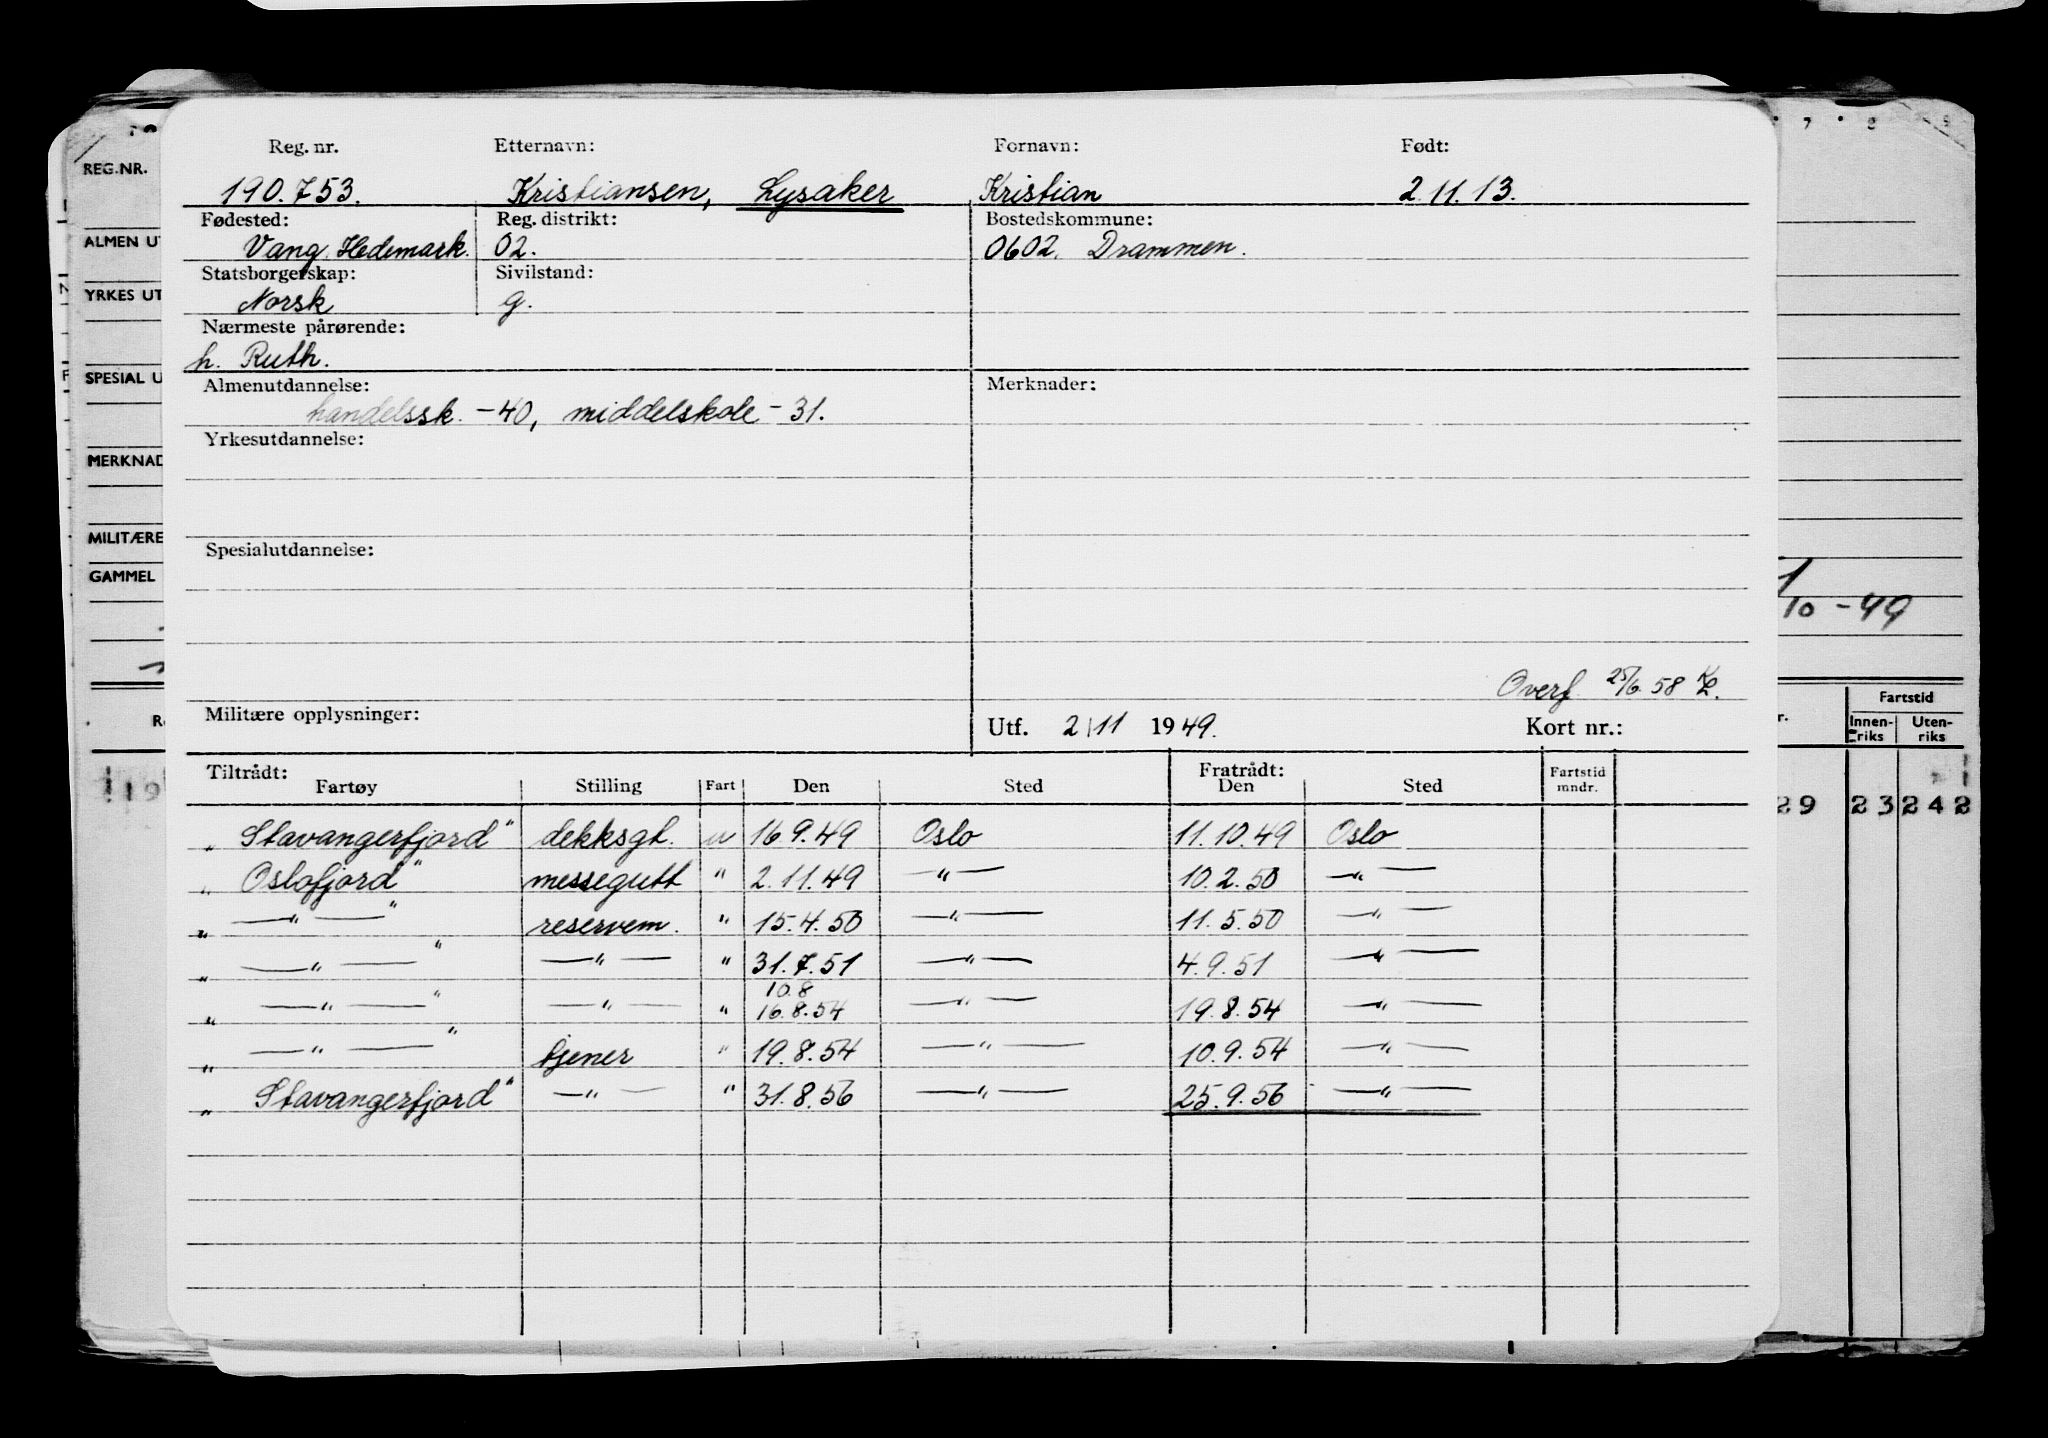 Reg. nr. Etternavn: Fornavn: Født:
190.753. Kristiansen, Lysaker Kristian 2.11.13.
Fødested: Reg. distrikt: Bostedskommune:
Vang, Hedemark. 02. 0602. Drammen.
Statsborgerskap: Sivilstand:
Norsk g.
Nærmeste pårørende:
h. Ruth.
Almenutdannelse: Merknader:
handelssk. -40, middelskole -31.
Yrkesutdannelse:
Spesialutdannelse:
Overf 25/6 58
Militære opplysninger: Utf. 2/11 1949. Kort nr.:
Tiltrådt: Fratrådt: Fartstid
Fartøy Stilling Fart Den Sted Den Sted mndr.
„ Stavangerfjord" dekksgt. u 16.9.49 Oslo 11.10.49 Oslo
„ Oslofjord" messegutt " 2.11.49 —"— 10.2.50 —"—
„ —"—" reservem. " 15.4.50 —"— 11.5.50 —"—
„ —"—" —"— " 31.7.51 —"— 4.9.51 —"—
10.8
„ —"—" —"— " 16.8.54 —"— 19.8.54 —"—
„ —"—" tjener " 19.8.54 —"— 10.9.54 —"—
„ Stavangerfjord" —"— " 31.8.56 —"— 25.9.56 —"—
REG.NR.
ALMEN UT
YRKES UT
SPESIAL U
MERKNAD
MILITÆRE
GAMMEL
7 8 9
1/10 -49
Fartstid
Innen- Uten-
riks riks
29 23 242